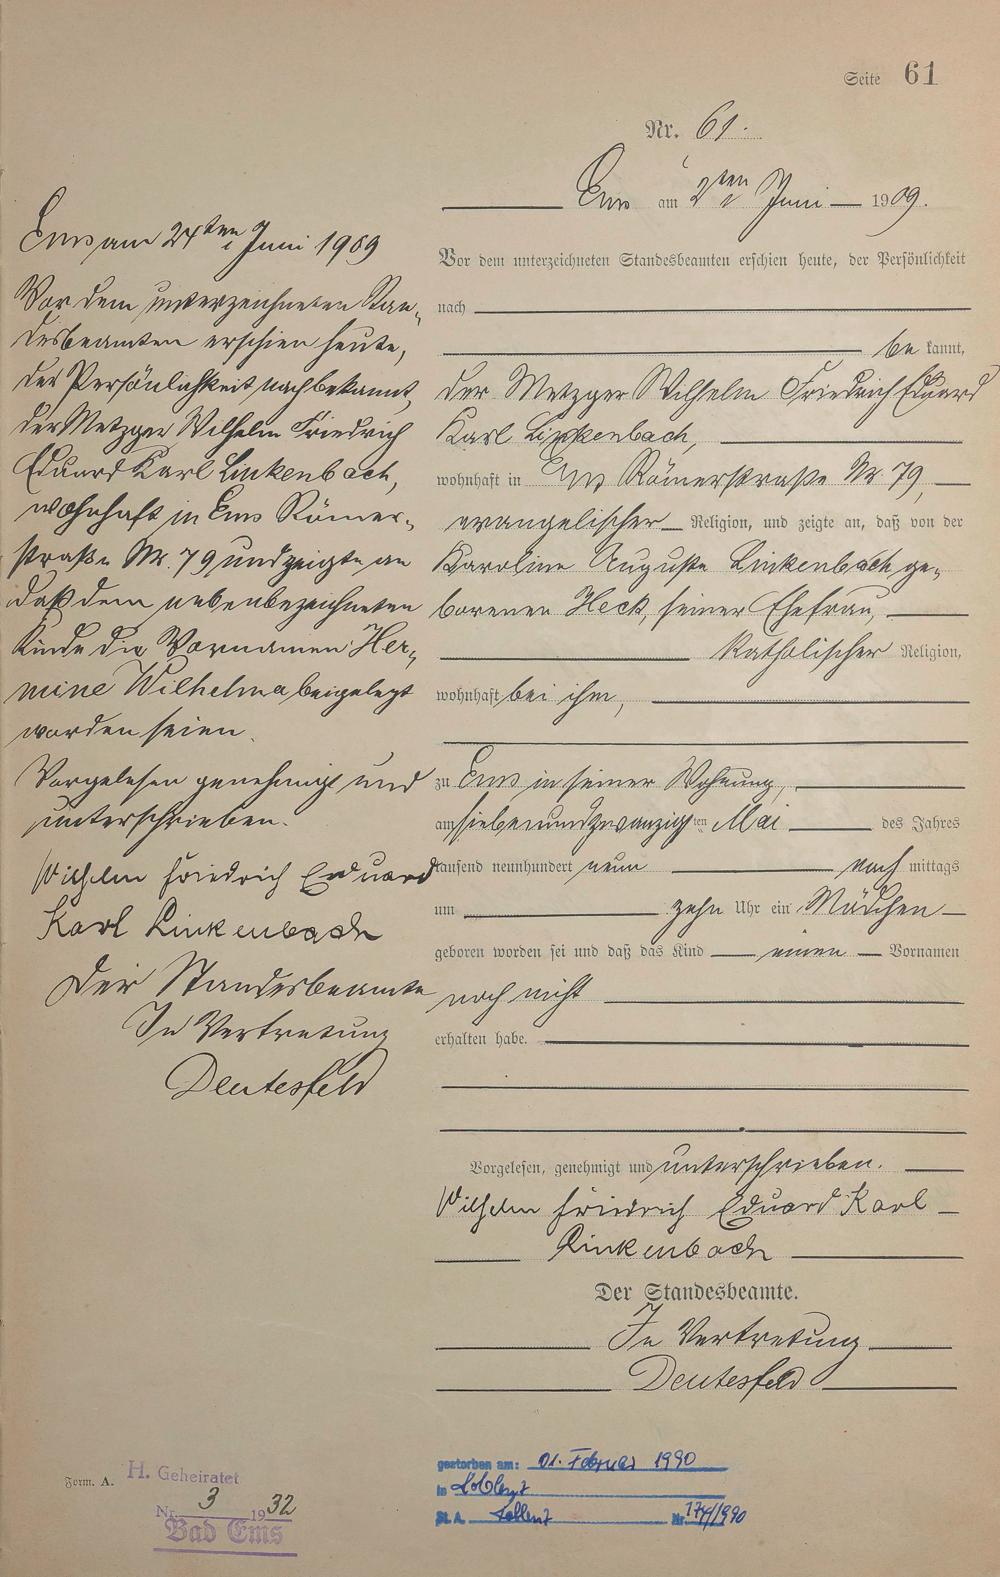 Seite 61
Nr. 61.
Ems am 2ten Juni 1909.
Vor dem unterzeichneten Standesbeamten erschien heute, der Persönlichkeit
nach
be kannt,
der Metzger Wilhelm Friedrich Eduard
Karl Linkenbach,
wohnhaft in Ems Römerstraße Nr 79,
evangelischer Religion, und zeigte an, daß von der
Karoline Auguste Linkenbach ge-
borenen Heck, seiner Ehefrau,
katholischer Religion,
wohnhaft bei ihm,
zu Ems in seiner Wohnung,
am siebenundzwanzigten Mai des Jahres
tausend neunhundert neun nach mittags
um zehn Uhr ein Mädchen
geboren worden sei und daß das Kind einen Vornamen
noch nicht
erhalten habe.
Vorgelesen, genehmigt und unterschrieben.
Wilhelm Friedrich Eduard Karl
Linkenbach
Der Standesbeamte.
In Vertretung
Deutesfeld
Ems am 24ten Juni 1909
Vor dem unterzeichneten Stan-
desbeamten erschien heute,
der Persönlichkeit nach bekannt,
der Metzger Wilhelm Friedrich
Eduard Karl Linkenbach,
wohnhaft in Ems Römer-
straße Nr. 79 und zeigte an
daß dem nebenbezeichneten
Kinde die Vornamen Her-
mine Wilhelma beigelegt
worden seien.
Vorgelesen genehmigt und
unterschrieben.
Wilhelm Friedrich Eduard
Karl Linkenbach
Der Standesbeamte
In Vertretung
Deutesfeld
Form. A.
H. Geheiratet
Nr. 3 1932
Bad Ems
gestorben am: 01. Februar 1990
in Koblenz
St. A. Koblenz Nr. /1990